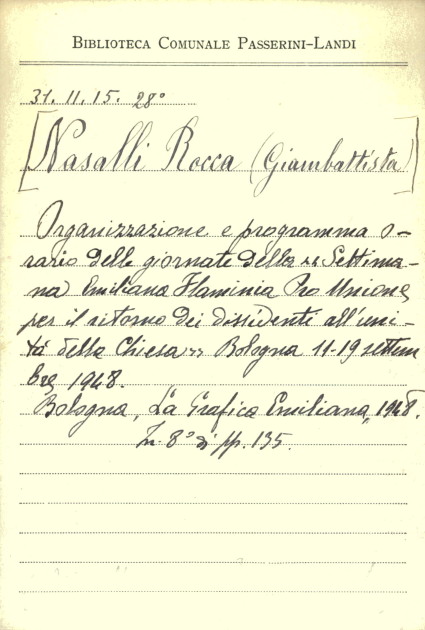 BIBLIOTECA COMUNALE PASSERINI-LANDI
31. 11. 15. 28°
[Nasalli Rocca (Giambattista)]
Organizzazione e programma o-
rario delle giornate della << Settima-
na Emiliano Flaminia Pro Unione
per il ritorno dei dissidenti all'uni-
tà della Chiesa >> Bologna 11-19 settem
bre 1948.
Bologna, La Grafica Emiliana, 1948.
In 8° di pp. 135.